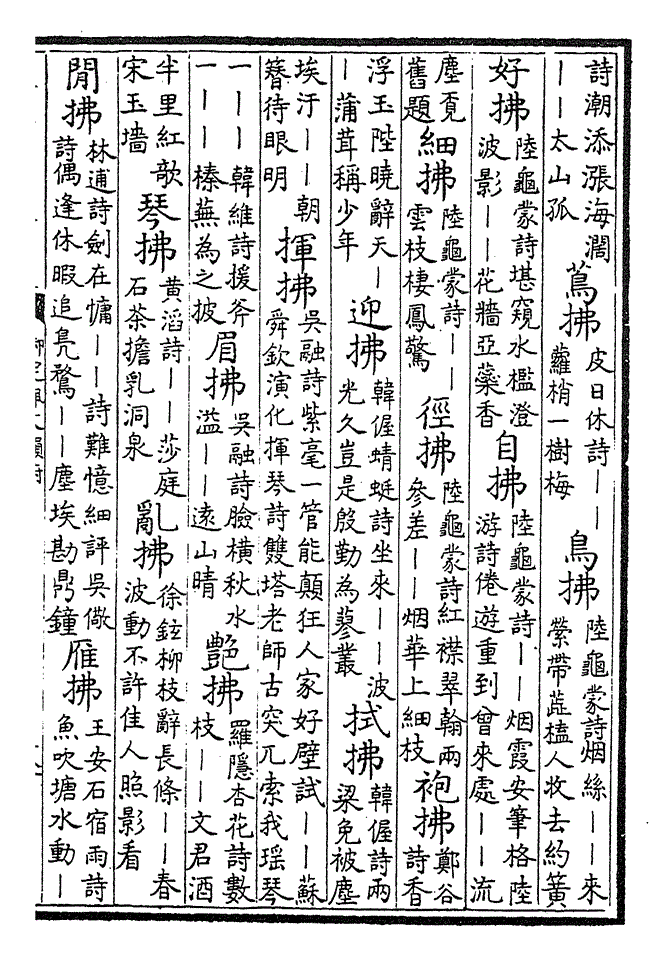 詩潮添漲海濶
——太山孤
蔦拂
皮日休詩——
蘿梢一樹梅
鳥拂
陸龜蒙詩烟絲——來
縈帶蔬榼人收去約簧
好拂
陸龜蒙詩堪窺水檻澄
波影——花牆亞蘂香
自拂
陸龜蒙詩——烟霞安筆格陸
游詩倦遊重到曾來處——流
塵覔
舊題
細拂
陸龜蒙詩——
雲枝棲鳳驚
徑拂
陸龜蒙詩紅襟翠翰兩
參差——烟華上細枝
袍拂
鄭谷
詩香
浮玉陛曉辭天—
—蒲茸稱少年
迎拂
韓偓蜻蜓詩坐來——波
光久豈是殷勤為蓼叢
拭拂
韓偓詩兩
梁免被塵
埃汙——朝
簪待眼明
揮拂
吳融詩紫毫一管能顛狂人家好壁試——蘇
舜欽演化揮琴詩雙塔老師古突兀索我瑶琴
一——韓維詩援斧
一——榛蕪為之披
眉拂
吳融詩臉橫秋水
溢——遠山晴
艷拂
羅隱杏花詩數
枝——文君酒
半里紅歌
宋玉墻
琴拂
黄滔詩——莎庭
石茶擔乳洞泉
亂拂
徐鉉柳枝辭長條——春
波動不許佳人照影看
閒拂
林逋詩劍在慵——詩難憶細評吳儆
詩偶逢休暇追鳧鶩——塵埃勘鼎鐘
雁拂
王安石宿雨詩
魚吹塘水動—